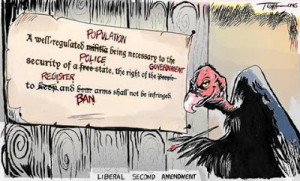 POPULATION
A well-regulated militia being necessary to the
POLICE GOVERNMENT
security of a free state, the right of the people
REGISTER
to keep and bear arms shall not be infringed.
BAN
LIBERAL SECOND AMENDMENT